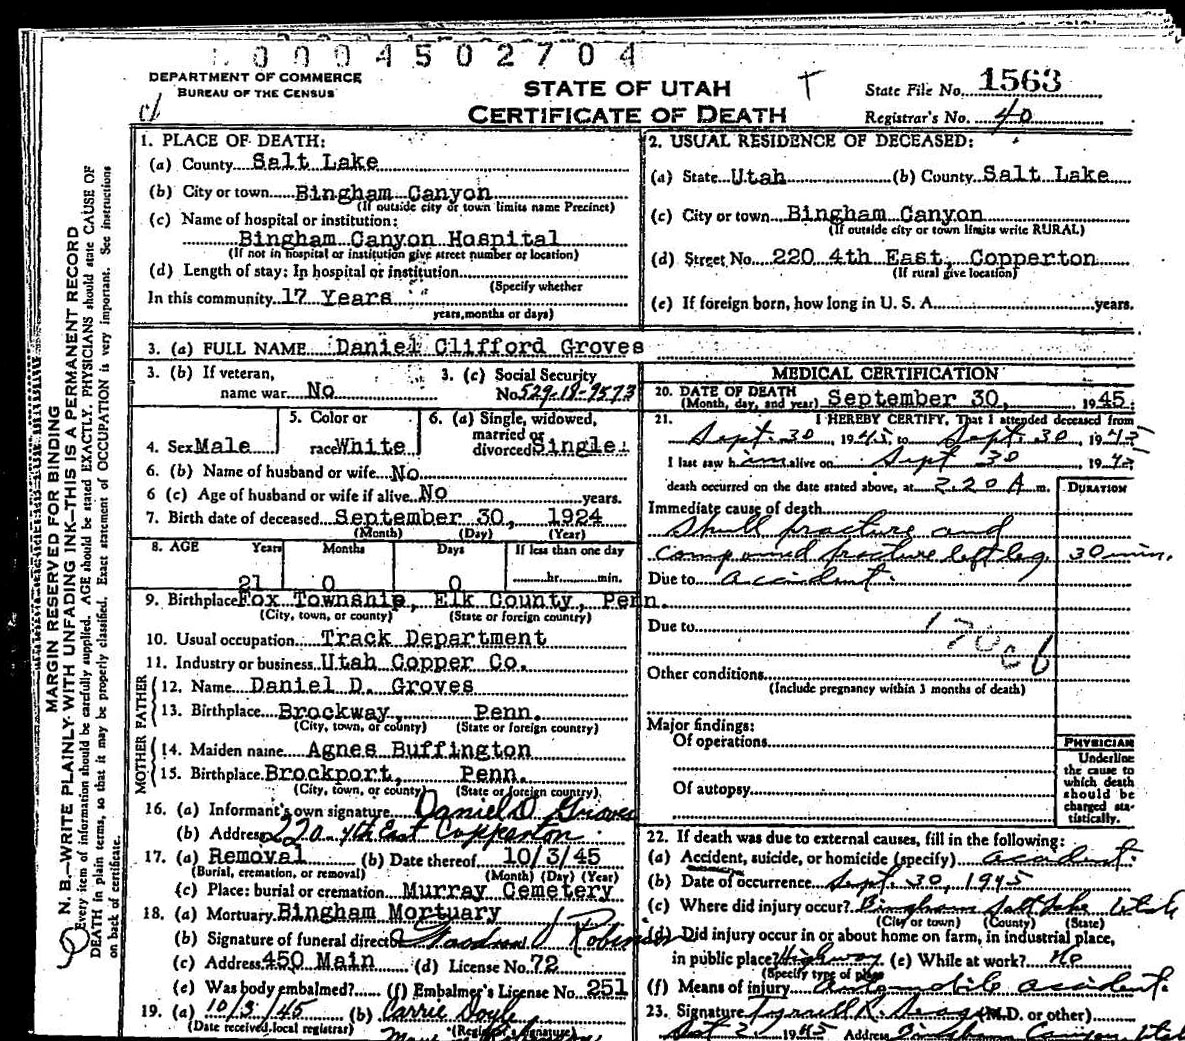 0004502704
DEPARTMENT OF COMMERCE
BUREAU OF THE CENSUS
STATE OF UTAH
CERTIFICATE OF DEATH
State File No. 1563
Registrar's No. 40
MARGIN RESERVED FOR BINDING
N. B.—WRITE PLAINLY WITH UNFADING INK—THIS IS A PERMANENT RECORD
Every item of information should be carefully supplied. AGE should be stated EXACTLY. PHYSICIANS should state CAUSE OF
DEATH in plain terms, so that it may be properly classified. Exact statement of OCCUPATION is very important. See instructions
on back of certificate.
1. PLACE OF DEATH:
(a) County Salt Lake
(b) City or town Bingham Canyon
(If outside city or town limits name Precinct)
(c) Name of hospital or institution:
Bingham Canyon Hospital
(If not in hospital or institution give street number or location)
(d) Length of stay: In hospital or institution
(Specify whether
In this community 17 Years
years, months or days)
2. USUAL RESIDENCE OF DECEASED:
(a) State Utah (b) County Salt Lake
(c) City or town Bingham Canyon
(If outside city or town limits write RURAL)
(d) Street No. 220 4th East, Copperton
(If rural give location)
(e) If foreign born, how long in U. S. A. years.
3. (a) FULL NAME Daniel Clifford Groves
3. (b) If veteran,
name war No
3. (c) Social Security
No 529-18-9573
4. Sex Male
5. Color or
race White
6. (a) Single, widowed,
married or
divorced Single
6. (b) Name of husband or wife No
6 (c) Age of husband or wife if alive No years.
7. Birth date of deceased September 30, 1924
(Month) (Day) (Year)
8. AGE Years Months Days If less than one day
21 0 0 hr. min.
9. Birthplace Fox Township, Elk County, Penn.
(City, town, or county) (State or foreign country)
10. Usual occupation Track Department
11. Industry or business Utah Copper Co.
FATHER
12. Name Daniel D. Groves
13. Birthplace Brockway, Penn.
(City, town, or county) (State or foreign country)
MOTHER
14. Maiden name Agnes Buffington
15. Birthplace Brockport, Penn.
(City, town, or county) (State or foreign country)
16. (a) Informant's own signature Daniel D. Groves
(b) Address 220 4th East Copperton
17. (a) Removal (b) Date thereof 10/3/45
(Burial, cremation, or removal) (Month) (Day) (Year)
(c) Place: burial or cremation Murray Cemetery
18. (a) Mortuary Bingham Mortuary
(b) Signature of funeral director Robinson
(c) Address 450 Main (d) License No. 72
(e) Was body embalmed? (f) Embalmer's License No. 251
19. (a) 10/3/45 (b) Carrie Doyle
(Date received local registrar) (Registrar's signature)
MEDICAL CERTIFICATION
20. DATE OF DEATH
(Month, day, and year) September 30, 1945
21. I HEREBY CERTIFY, That I attended deceased from
Sept. 30, 1945 to Sept. 30, 1945
I last saw him alive on Sept 30, 1945
death occurred on the date stated above, at 2:20 A m.
DURATION
Immediate cause of death
Skull fracture and
compound fracture left leg 30 min.
Due to accident.
Due to
170cb
Other conditions
(Include pregnancy within 3 months of death)
Major findings:
Of operations
Of autopsy
PHYSICIAN
Underline
the cause to
which death
should be
charged sta-
tistically.
22. If death was due to external causes, fill in the following:
(a) Accident, suicide, or homicide (specify) accident.
(b) Date of occurrence Sept. 30, 1945
(c) Where did injury occur? Bingham Salt Lake Utah
(City or town) (County) (State)
(d) Did injury occur in or about home on farm, in industrial place,
in public place? Highway (e) While at work? No
(Specify type of place)
(f) Means of injury automobile accident.
23. Signature (M.D. or other)
Oct 2 1945 Address Bingham Canyon Utah